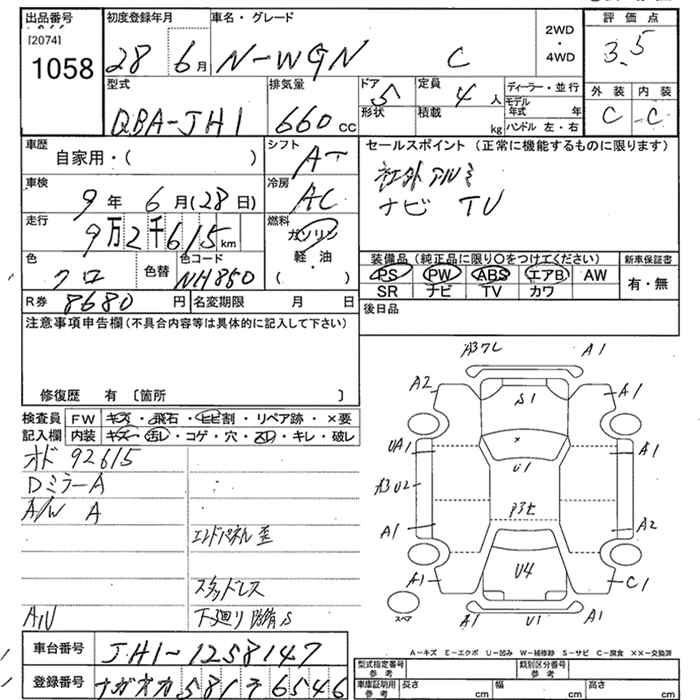 出品番号 初度登録年月 車名・グレード 2WD・4WD 評価点
[2074] 1058 28 6月 N-WGN C 3.5
型式 排気量 ドア 5 定員 4人 ディーラー・並行 外装 内装
QBA-JH1 660cc 形状 積載 kg モデル年式 年 ハンドル 左・右 C C
車歴 自家用・( ) シフト AT セールスポイント (正常に機能するものに限ります)
車検 9年6月(28日) 冷房 AC 社外アルミ
走行 9万2千615km 燃料 ガソリン 軽油 ( ) ナビ TV
色 クロ 色替 色コード NH850 装備品 (純正品に限り○をつけてください) 新車保証書
PS PW ABS エアB AW 有・無
R券 8680円 名変期限 月 日 SR ナビ TV カワ
注意事項申告欄 (不具合内容等は具体的に記入して下さい) 後日品
修復歴 有 〔箇所 〕
検査員 FW キズ・飛石・ヒビ割・リペア跡・×要
記入欄 内装 キズ・汚レ・コゲ・穴・スレ・キレ・破レ
オド 92615
Dミラー A
A/W A
エンドパネル歪
スタッドレス
下廻り 防錆S
A1U
A37L A1
A2 S1 A1
UA1 U1 A1
A3U2
A1 A2
A1 U4 C1
スペア A1 U1 A1
A-キズ E-エクボ U-凹み W-補修跡 S-サビ C-腐食 XX-交換済
車台番号 JH1-1258147
型式指定番号 参考 類別区分番号 参考
登録番号 ナガオカ581テ6546
車庫証明用 参考 長さ cm 幅 cm 高さ cm